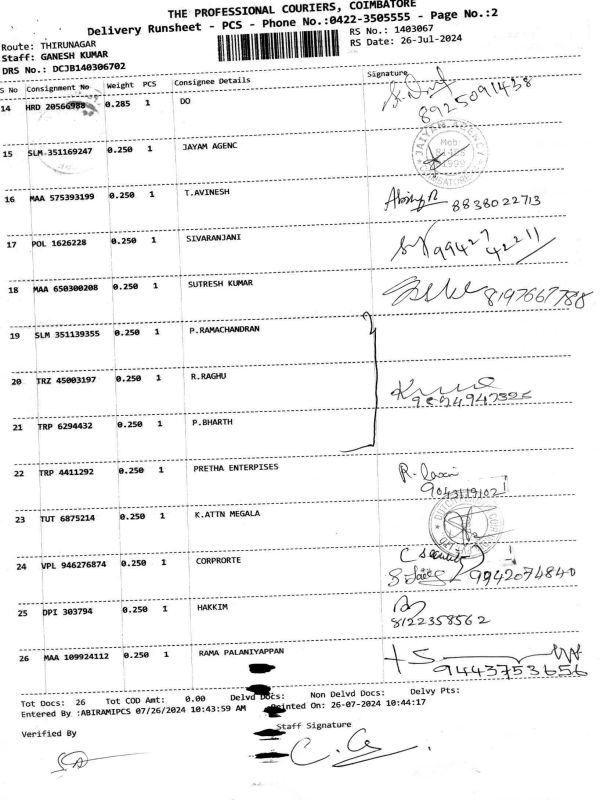 THE PROFESSIONAL COURIERS, COIMBATORE
Delivery Runsheet - PCS - Phone No.:0422-3505555 - Page No.:2
Route: THIRUNAGAR RS No.: 1403067
Staff: GANESH KUMAR RS Date: 26-Jul-2024
DRS No.: DCJB140306702
S No Consignment No Weight PCS Consignee Details Signature
14 HRD 20566988 0.285 1 DO
8925091438
15 SLM 351169247 0.250 1 JAYAM AGENC
16 MAA 575393199 0.250 1 T.AVINESH 8838022713
17 POL 1626228 0.250 1 SIVARANJANI 99427
42211
18 MAA 650300208 0.250 1 SUTRESH KUMAR 8197667788
19 SLM 351139355 0.250 1 P.RAMACHANDRAN
20 TRZ 45003197 0.250 1 R.RAGHU
21 TRP 6294432 0.250 1 P.BHARTH
22 TRP 4411292 0.250 1 PRETHA ENTERPISES
9043119102
23 TUT 6875214 0.250 1 K.ATTN MEGALA
24 VPL 946276874 0.250 1 CORPRORTE
9942074840
25 DPI 303794 0.250 1 HAKKIM
8122358562
26 MAA 109924112 0.250 1 RAMA PALANIYAPPAN
9443753656
Tot Docs: 26 Tot COD Amt: 0.00 Delvd Docs: Non Delvd Docs: Delvy Pts:
Entered By :ABIRAMIPCS 07/26/2024 10:43:59 AM Printed On: 26-07-2024 10:44:17
Verified By Staff Signature